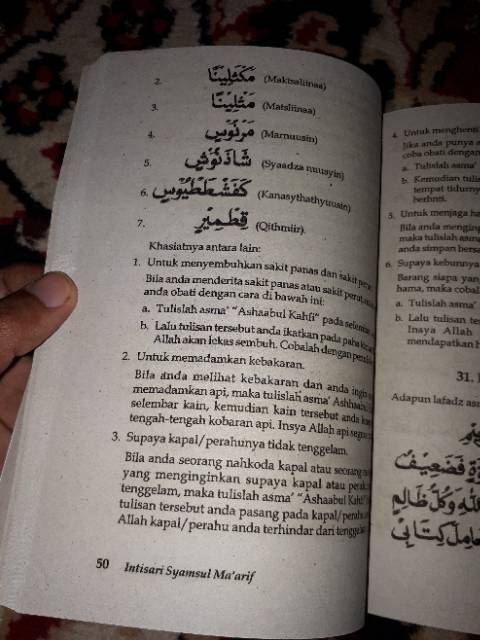 2. مَكْثَلِيْنَا (Maktsaliinaa)
3. مَثْلِيْنَا (Matsliinaa)
4. مَرْنُوْسٍ (Marnuusin)
5. شَاذَنُوْشٍ (Syaadza nuusyin)
6. كَفَشْطَطْيُوْسٍ (Kanasythathyuusin)
7. قِطْمِيْرٍ (Qithmiir).
Khasiatnya antara lain:
1. Untuk menyembuhkan sakit panas dan sakit
Bila anda menderita sakit panas atau sakit
anda obati dengan cara di bawah ini:
a. Tulislah asma' "Ashaabul Kahfi" pada
b. Lalu tulisan tersebut anda ikatkan pada paha
Allah akan lekas sembuh. Cobalah dengan
2. Untuk memadamkan kebakaran.
Bila anda melihat kebakaran dan anda ingin
memadamkan api, maka tulislah asma'
selembar kain, kemudian kain tersebut anda
tengah-tengah kobaran api. Insya Allah api
3. Supaya kapal/perahunya tidak tenggelam.
Bila anda seorang nahkoda kapal atau seorang
yang menginginkan supaya kapal atau
tenggelam, maka tulislah asma' "Ashaabul Kahfi"
tulisan tersebut anda pasang pada kapal/perahu
Allah kapal/perahu anda terhindar dari
50 Intisari Syamsul Ma'arif
4. Untuk
Jika anda punya
coba obati dengan
a. Tulislah asma'
b. Kemudian
tempat
berhnti.
5. Untuk menjaga
Bila anda
maka tulislah
anda simpan
6. Supaya kebunnya
Barang siapa yan
hama, maka
a. Tulislah asma'
b. Lalu tulisan
Insya Allah
mendapatkan
31.
Adapun lafadz
فَضَعِيْفٌ
وَكُلُّ ظَالِمٍ
كِتَابِيْ